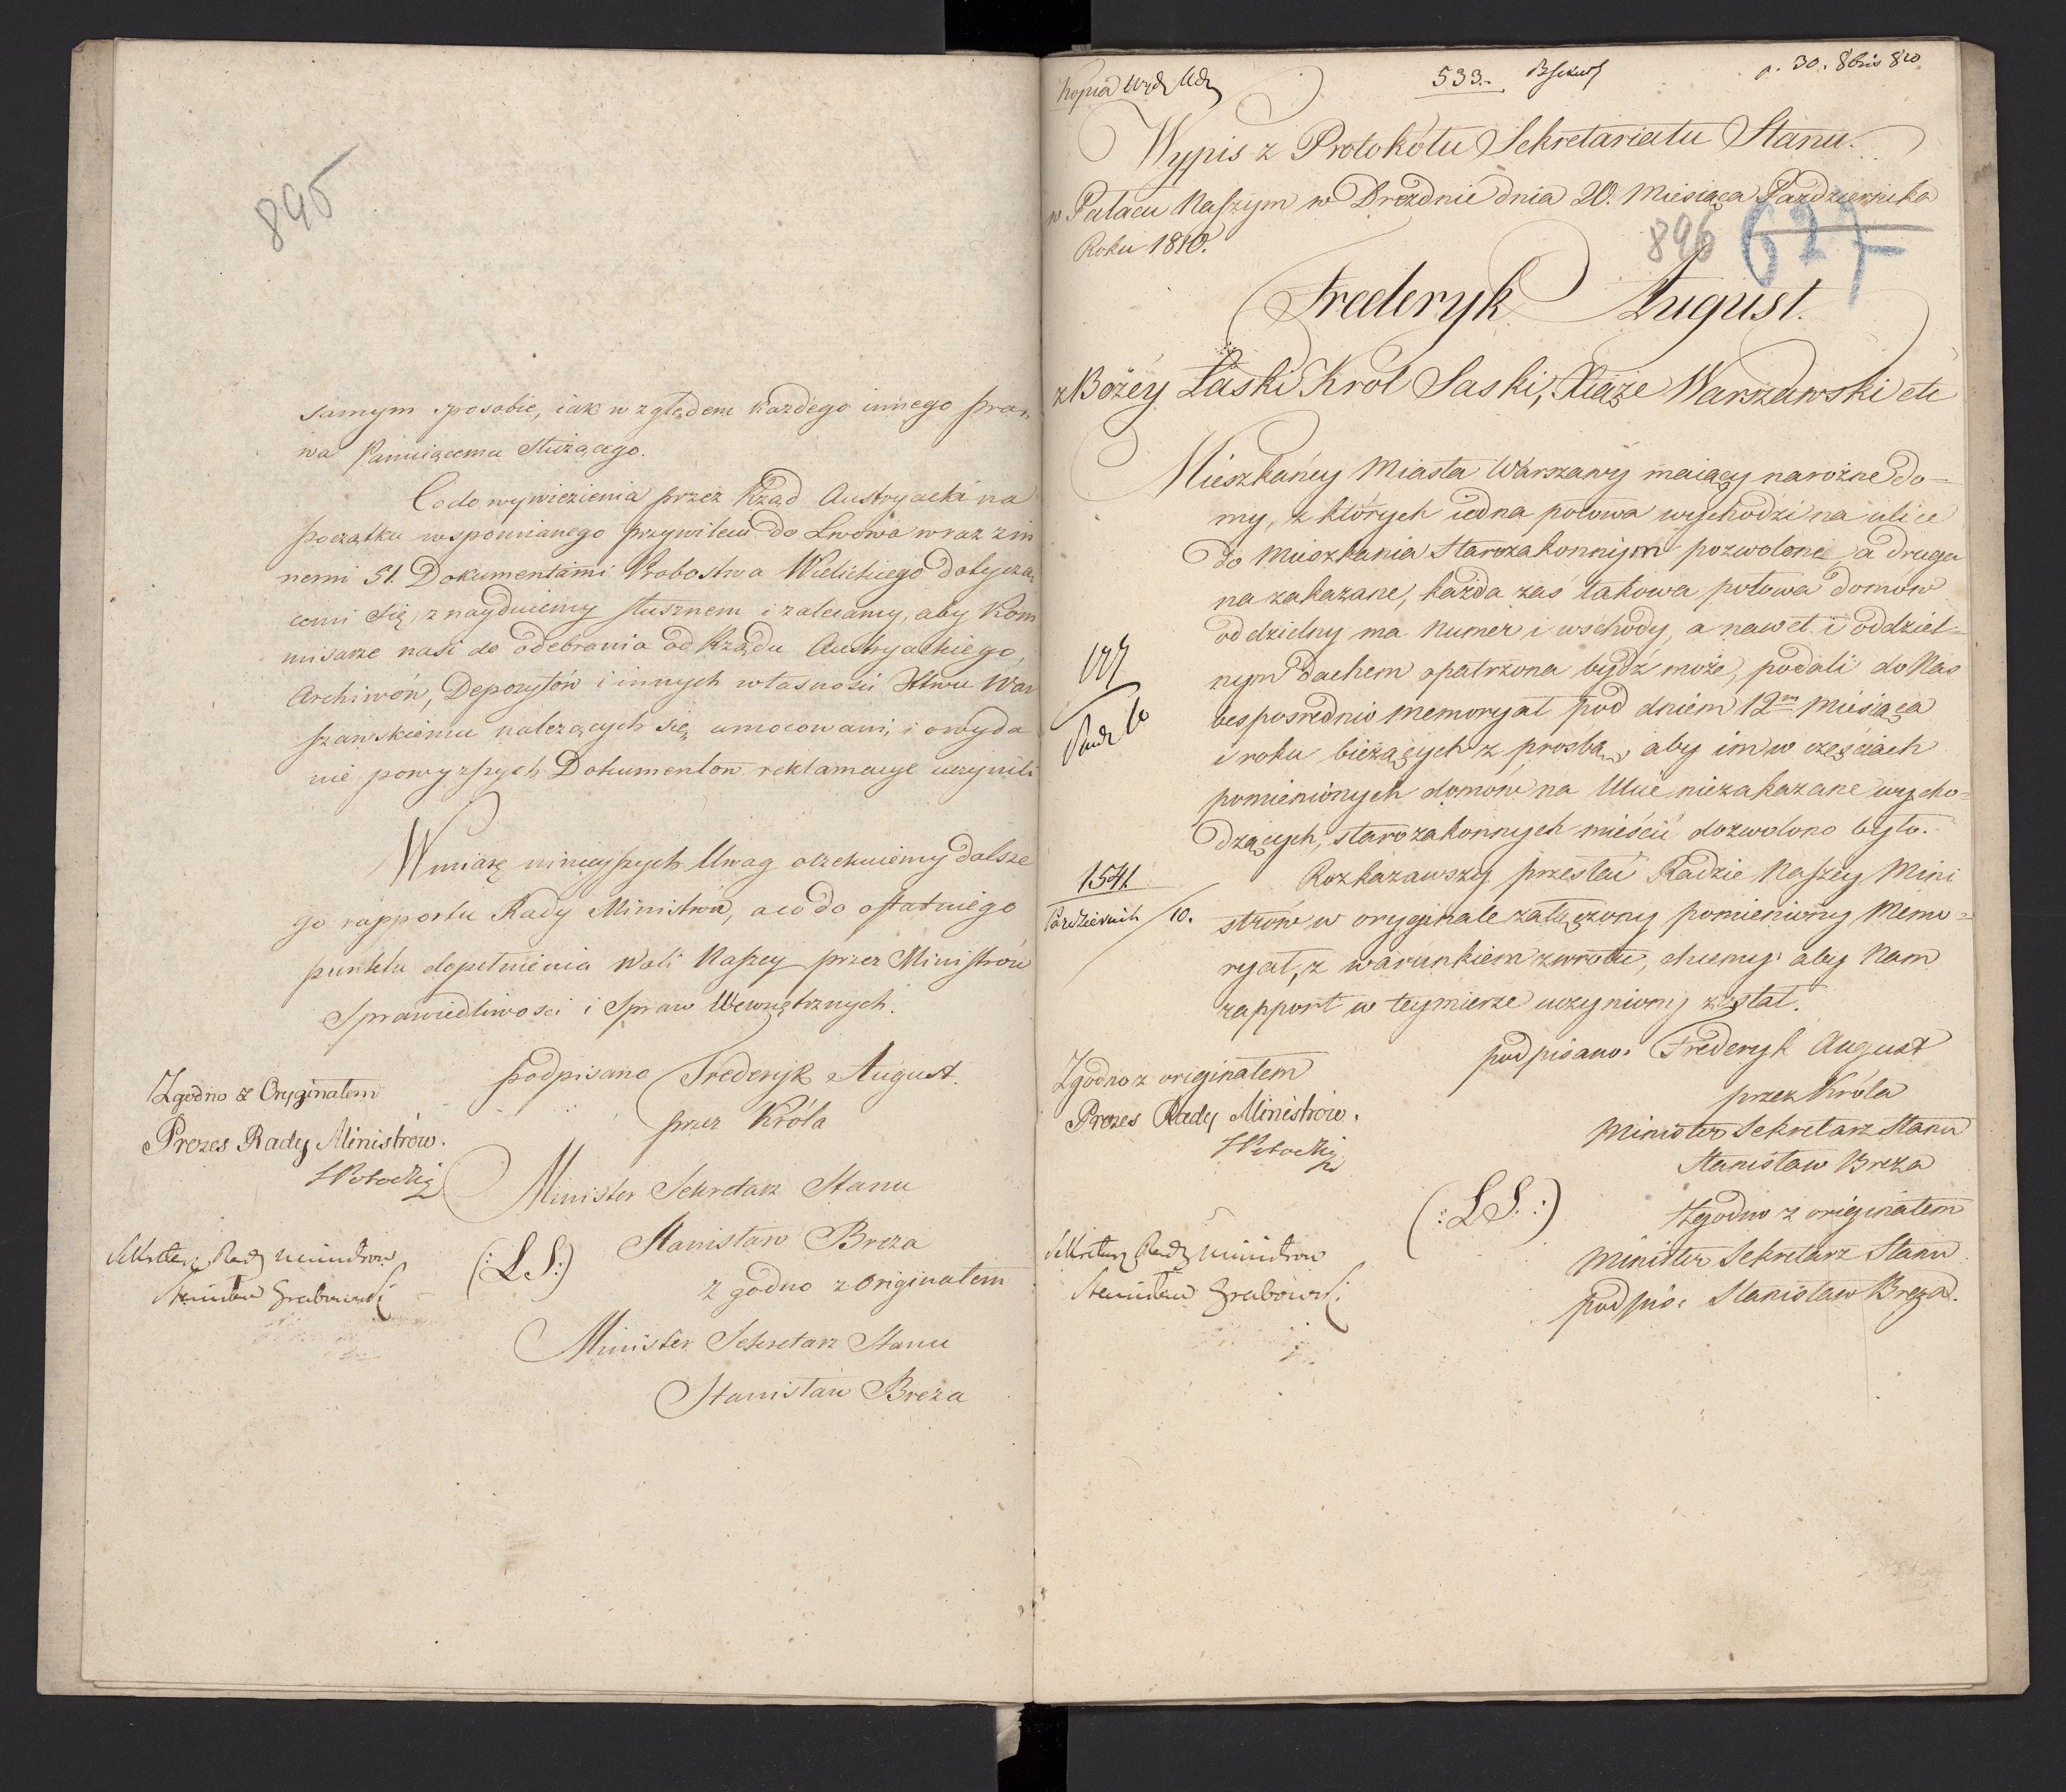 895
samym sposobie, iak względem każdego innego pra-
wa Panuiącemu służącego.
Co do wywiezienia przez Rząd Austryacki na
początku wspomnianego przywileiu do Lwowa wraz z in
nemi 51. Dokumentami Probostwa Wielickiego dotycza,
cemi się, znayduiemy słusznem i zalecamy, aby Kom
misarze nasi do odebrania od Rządu Austryackiego,
Archiwów, Depozytów i innych własności Xtwu War
szawskiemu należących się, umocowani, i o wyda
nie powyższych Dokumentow reklamacye uczynili
W miarę ninieyszych Uwag oczekuiemy dalsze
go rapportu Rady Ministrów, a co do ostatniego
punktu dopełnienia Woli Naszey przez Ministrów
Sprawiedliwosci i Spraw Wewnętrznych.
podpisano Frederyk August.
przez Króla
Minister Sekretarz Stanu
(:L.S:) Stanisław Breza
zgodno z Originałem
Minister Sekretarz Stanu
Stanisław Breza
Zgodno z Oryginałem
Prezes Rady Ministrów.
SPotocki
Sekretarz Rady Ministrow
Stanisław Grabowski
Kopia
533.
p. 30. 8bris 810
Wypis z Protokółu Sekretariatu Stanu.
w Pałacu Naszym w Dreźdnie dnia 20. Miesiąca Pazdziernika
Roku 1810.
896 627
Frederyk August.
z Bożéy Łaski Krol Saski, Xiąże Warszawski etc
Mieszkańcy Miasta Warszawy maiący narożne do-
my, z których iedna połowa wychodzi na ulice
do mieszkania Starozakonnym pozwolone, a druga
na zakazane, każda zaś takowa połowa domów
oddzielny ma Numer i wschody, a nawet i oddziel-
nym dachem opatrzona bydź może, podali do Nas
bespośrednio memoryał pod dniem 12m miesiąca
i roku bieżących z prosbą, aby im w częściach
pomienionych domów na Ulice niezakazane wycho-
dzących, starozakonnych mieścić dozwolono było.
1541
Pazdziernik /10.
Rozkazawszy przesłać Radzie Naszey Mini
strów w oryginale załączony pomieniony Memo-
ryał, z warunkiem zwrotu, chcemy aby Nam
rapport w teymierze uczyniony został.
podpisano. Frederyk August
przez Króla
Minister Sekretarz Stanu
Stanisław Breza
(:L.S.:)
Zgodno z originałem
Minister Sekretarz Stanu
podpis: Stanisław Breza.
Zgodno z originałem
Prezes Rady Ministrów.
SPotocki
Sekretarz Rady Ministrow
Stanisław Grabowski